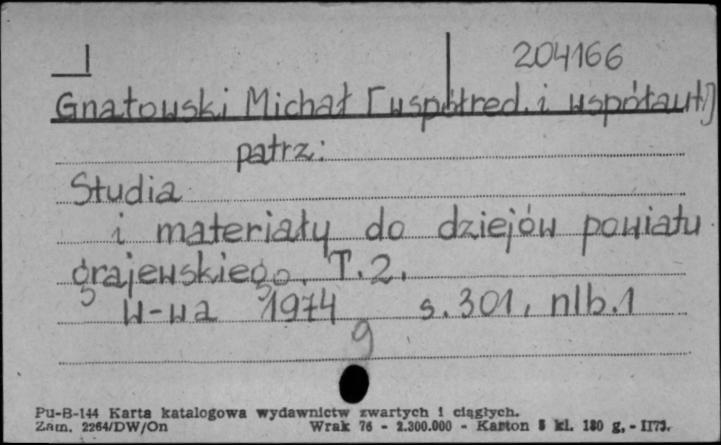 I 204166
Gnatowski Michał [współred. i współaut.]
patrz:
Studia
i materiały do dziejów powiatu
grajewskiego. T. 2.
W-wa 1974 s. 301, nlb. 1
g
Pu-B-144 Karta katalogowa wydawnictw zwartych i ciągłych.
Zam. 2264/DW/On Wrak 76 - 2.300.000 - Karton kl. 180 g, - II73.